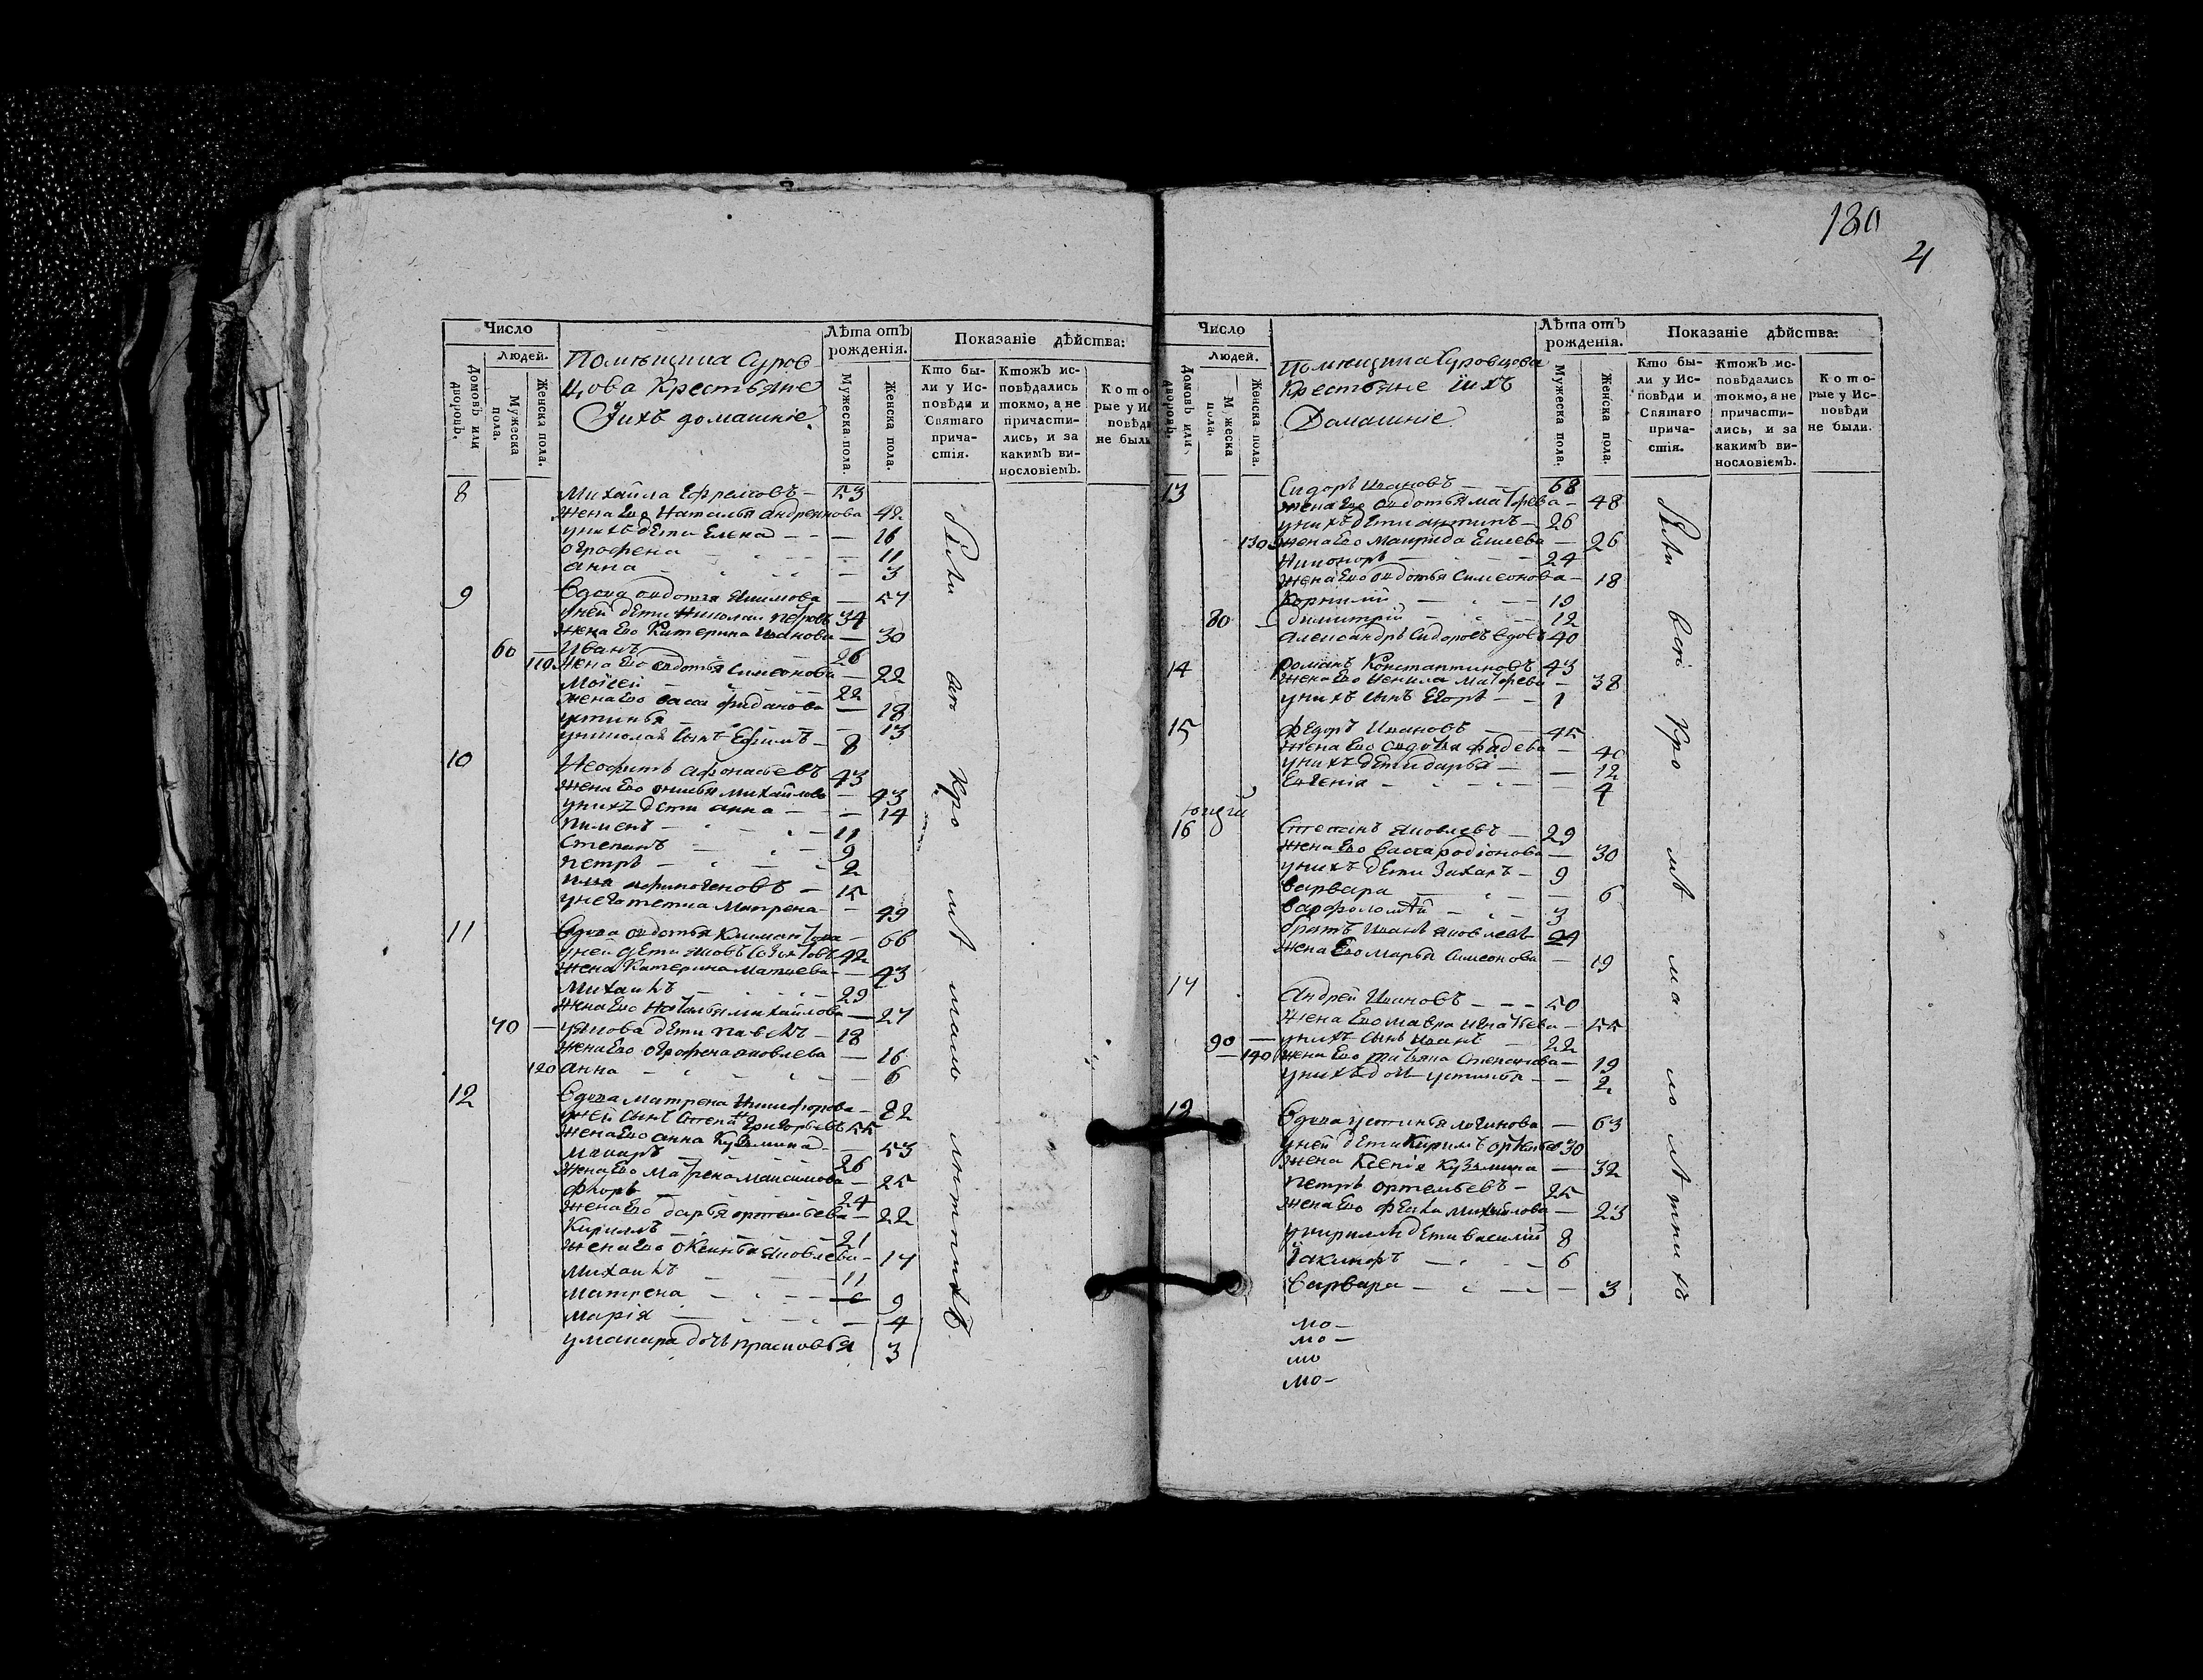 180
4
Число
Людей.
Домовъ или дворовъ.
Мужеска пола.
Женска пола.
Помѣщика Суров-
цова Крестьяне
Ихъ домашніе.
Лѣта отъ рожденія.
Мужеска пола.
Женска пола.
Показаніе дѣйства:
Кто бы-
ли у Ис-
повѣди и
Святаго
прича-
стія.
Ктожъ ис-
повѣдались
токмо, а не
причасти-
лись, и за
какимъ ви-
нословіемъ.
Кото-
рые у Ис
повѣд
не был
8 Михайла Ефремовъ — 53
жена Ево Наталья андреянова 42
унихъ дети Елена — — — 16
огрофена — — — 11
анна — — — 3
9 вдова авдотья Якимова — 57
уней дети николай петровъ 34
жена Ево Катерина Иванова — 30
60 — Иванъ 26
110 жена Ево авдотья Симеонова — 22
Моисей — 22
жена Ево васса — 18
устинья — 13
униколая сынъ Ефимъ — 8
10 Неофитъ афонасьевъ 43
жена Ево Михайлова — 43
унихъ дети анна — — 14
пименъ — 11
Степанъ — 9
петръ — 2
афиногеновъ — 15
унего тетка Матрена — 49
11 вдова авдотья — 66
уней дети яковъ 42
жена Катерина Матвеева — 43
Михаилъ — 29
жена Ево Наталья михайлова — 27
70 — уякова дети павелъ — 18
жена Ево огрофена яковлева — 16
120 анна — — — 6
12 вдова матрена Никифорова — 82
уней сынъ Степанъ Григорьевъ 55
жена Ево анна Кузьмина — 53
Макаръ — 26
жена Ево Матрена Максимова — 25
флоръ — 24
жена Ево дарья ортемьева — 22
Кириллъ — 21
жена Ево яковлева — 17
Михаилъ — 11
Матрена — — 9
марія — — 4
умакара дочь прасковья 3
Сіи вси Кро мѣ мало лѣтнихъ
Число
Людей.
Домовъ или дворовъ.
Мужеска пола.
Женска пола.
Помѣщика Суровцова
Крестьяне ихъ
Домашніе
Лѣта отъ рожденія.
Мужеска пола.
Женска пола.
Показаніе дѣйства:
Кто бы-
ли у Ис-
повѣди и
Святаго
прича-
стія.
Ктожъ ис-
повѣдались
токмо, а не
причасти-
лись, и за
какимъ ви-
нословіемъ.
Кото-
рые у Ис-
повѣди
не были.
13 Сидоръ Ивановъ — 68
жена Ево авдотья матфева — 48
унихъ дети антипъ — 26
130 жена Ево Маврида Елисева — 26
Никоноръ — 24
жена Ево авдотья Симеонова — 18
Корнилий — 19
80 — димитрій — 12
александръ Сидоровъ вдовъ 40
14 романъ Константиновъ 43
жена Ево Ненила Матфева — 38
унихъ сынъ Егоръ — — 1
15 федоръ Ивановъ — 45
жена Ево авдотья фадева — 40
унихъ дети дарья — — 12
Евгенія — — 4
16 Степанъ яковлевъ — 29
жена Ево васса родіонова — 30
унихъ дети Захаръ — 9
варвара — — 6
варфоломѣй — 3
братъ Иванъ яковлевъ 24
жена Ево марья Симеонова — 19
17 Андрей Ивановъ — — — 50
жена Ево мавра игнатьева — 55
90 — унихъ сынъ Иванъ — 22
— 140 жена Ево татьяна Степанова — 19
унихъ дочь устинья — — 2
вдова устинья логинова — 63
уней дети Кирилъ 30
жена Ксенія Кузьмина — 32
петръ ортемьевъ — 25
жена Ево Михайлова — 23
укириллы дети василій 8
Іакинфъ — 6
варвара — — 3
Сіи вси Кро мѣ ма ло лѣтнихъ
мо —
мо —
мо
мо —